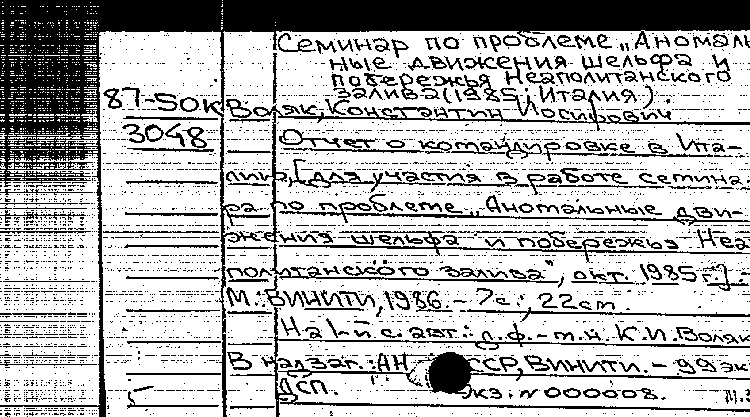 Семинар по проблеме „Аномаль
ные движения шельфа и
побережья Неаполитанского
залива (1985; Италия)
87-SOK Воляк, Константин Иосифович.
3048 Отчет о командировке в Ита-
лию, [для участия в работе семина-
ра по проблеме „Аномальные дви-
жения шельфа и побережья Неа
политанского залива", окт. 1985 г.] -
М.: ВИНИТИ, 1986. - 7с.; 22см.
На 1-й с. авт.: д.ф.-м.н. К.И. Воляк
В надзаг.: АН СССР, ВИНИТИ. - 99 эк
ДСП. Экз. N 000008.